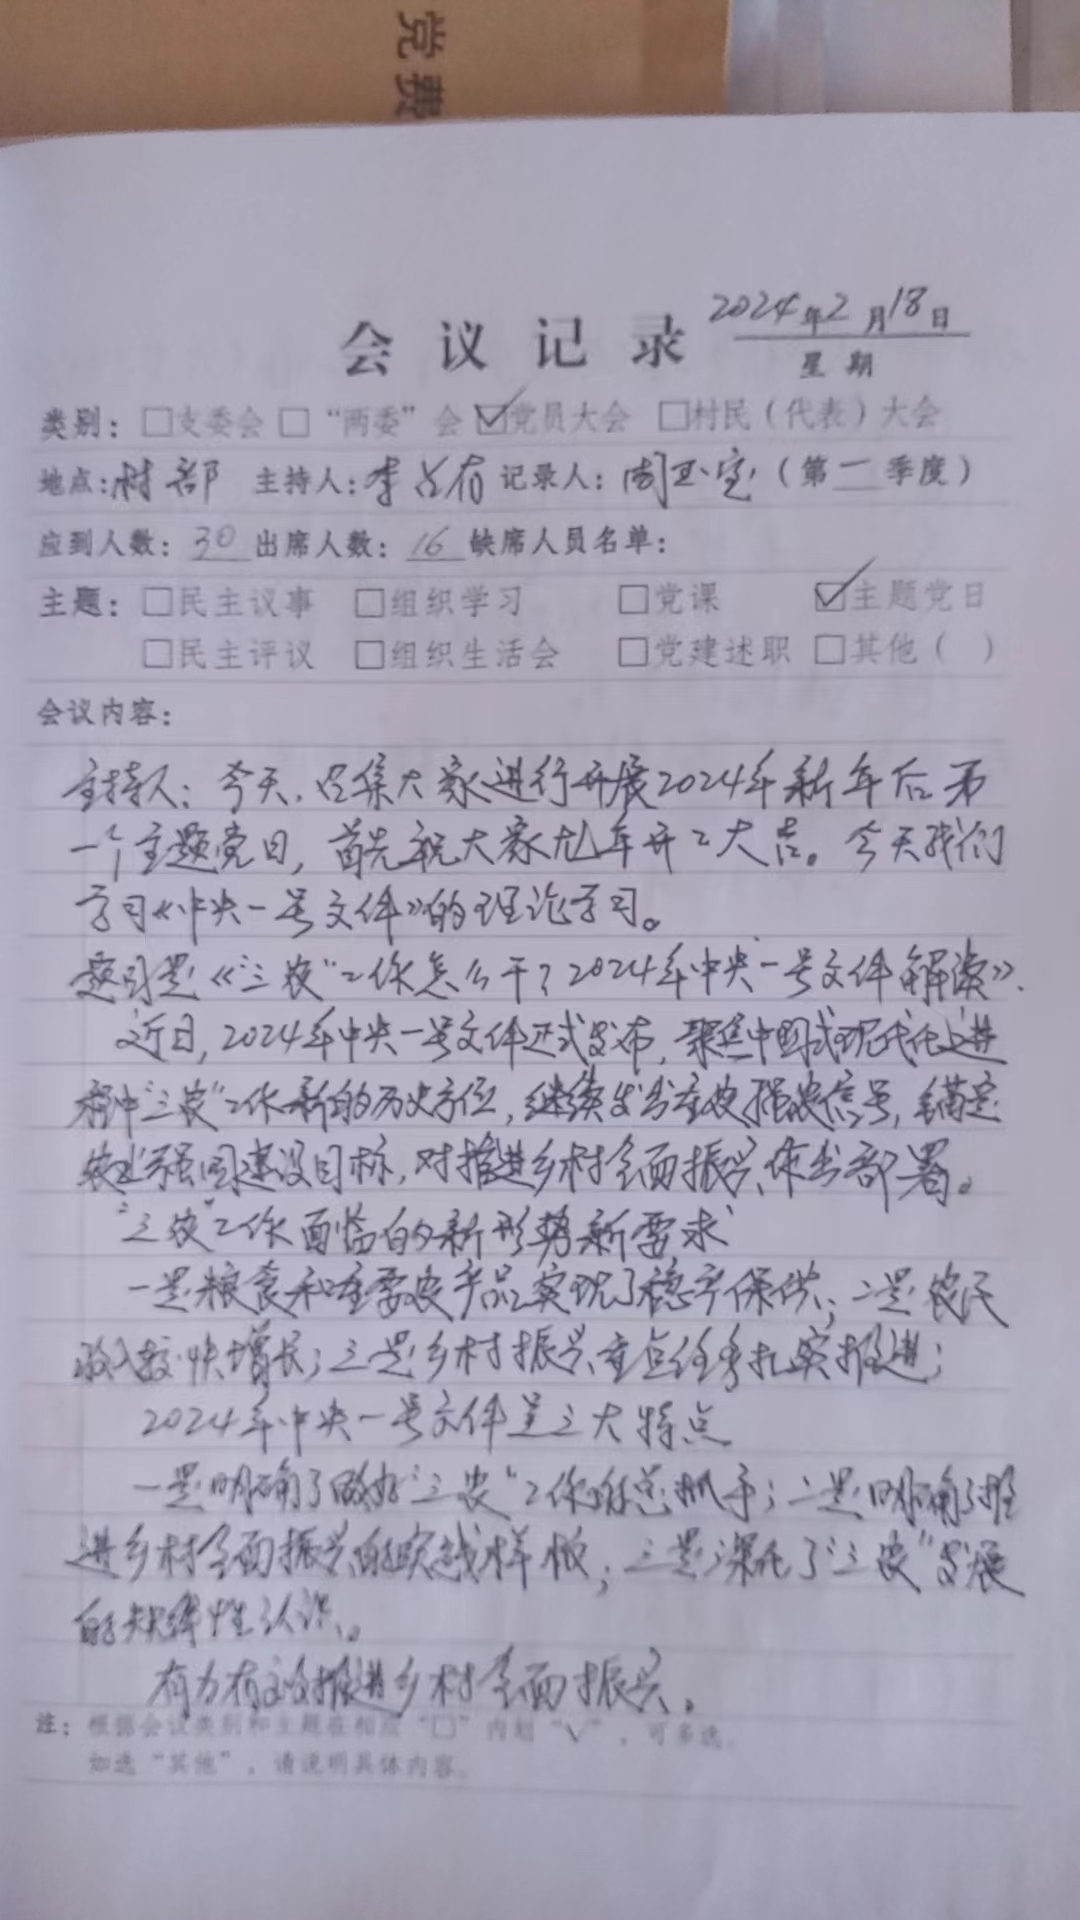 党费
会议记录 2024年2月18日
星期
类别：□支委会 □“两委”会 ☑党员大会 □村民（代表）大会
地点：村部 主持人：李占有 记录人：周玉宝（第一季度）
应到人数：30 出席人数：16 缺席人员名单：
主题：□民主议事 □组织学习 □党课 ☑主题党日
□民主评议 □组织生活会 □党建述职 □其他（ ）
会议内容：
主持人：今天，召集大家进行开展2024年新年后第
一个主题党日，首先祝大家龙年开工大吉。今天我们
学习《中央一号文件》的理论学习。
题目是《“三农”工作怎么干？2024年中央一号文件解读》.
近日，2024年中央一号文件正式发布，聚焦中国式现代化进
程中“三农”工作新的历史方位，继续发出重农强农信号，锚定
农业强国建设目标，对推进乡村全面振兴作出部署。
“三农”工作面临的新形势新要求
一是粮食和重要农产品实现了稳产保供；二是农民
收入较快增长；三是乡村振兴重点任务扎实推进；
2024年中央一号文件呈三大特点
一是明确了做好“三农”工作的总抓手；二是明确了推
进乡村全面振兴的实践样板；三是深化了“三农”发展
的规律性认识。
有力有效推进乡村全面振兴。
注：根据会议类别和主题在相应“□”内划“√”，可多选。
如选“其他”，请说明具体内容。